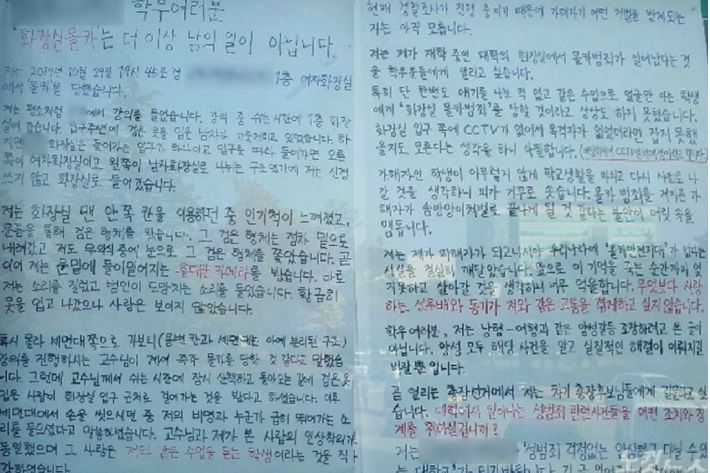 학우여러분
'화장실몰카'는 더 이상 남의 일이 아닙니다.
저는 2019년 10월 29일 19시 45분경 1층 여자화장실
에서 '몰카'를 당했습니다.
저는 평소처럼 에서 강의를 들었습니다. 강의 중 쉬는시간에 1층 화장
실에 갔습니다. 입구주변에 검은 옷을 입은 남자가 있었습니다. 하
지만 화장실은 들어가는 입구가 하나이고 입구를 따라 들어가면 오른
쪽이 여자화장실이고 왼쪽이 남자화장실로 나뉘는 구조였기에 저는 신경
쓰지 않고 화장실로 들어갔습니다.
저는 화장실 맨 안쪽 칸을 이용하던 중 인기척이 느껴졌고,
문틈을 통해 검은 형체를 봤습니다. 그 검은 형체는 점차 밑으로
내려갔고 저도 무의식중에 눈으로 그 검은 형체를 쫓았습니다. 곧
이어 저는 문밑에 들이밀어지는 휴대폰 카메라를 봤습니다. 바로
저는 소리를 질렀고 범인이 도망치는 소리를 들었습니다. 황급히
옷을 입고 나갔으나 사람은 보이지 않았습니다.
혹시 몰라 세면대쪽으로 가보니 (화변칸과 세면대는 아예 분리된 구조)
강의를 진행하시는 교수님이 계셔 즉각 몰카를 당한 것 같다고 말했습
니다. 그런데 교수님께서 쉬는 시간에 잠시 산책하고 돌아오는 길에 검은 옷
입은 사람이 화장실 입구 근처로 걸어가는 것을 봤다고 하셨습니다. 이후
세면대에서 손을 씻으시던 중 저의 비명과 누군가 급히 뛰어가는 소
리를 들으셨다고 말씀하셨습니다. 교수님과 제가 본 사람의 인상착의가
동일했으며 그 사람은 저와 같은 수업을 듣는 학생이라는 것을 직
감하였습니다.
현재 경찰조사가 진행 중이기 때문에 가해자가 어떤 처벌을 받게되는
지는 아직 모릅니다.
저는 제가 재학 중인 대학의 화장실에서 몰카범죄가 일어났다는 것
을 학우분들에게 알리고 싶습니다.
특히 단 한번도 얘기를 나눈 적 없고 같은 수업으로 얼굴만 아는 학생
에게 "화장실 몰카범죄"를 당할 것이라고 상상도 하지 못했습니다.
화장실 입구 쪽에 CCTV가 없어서 목격자가 없었더라면 잡지 못했
을지도 모른다는 생각을 하니 아찔합니다.
가해자인 학생이 아무렇지 않게 학교생활을 마치고 다시 사회로 나
갈 것을 생각하니 피가 거꾸로 솟습니다. 몰카 범죄를 저지른 가
해자가 솜방망이처벌로 끝나게 될 것 같다는 불안이 머릿 속을
맴돕니다.
저는 제가 피해자가 되고나서야 우리나라에 "몰카안전지대"가 없다는
사실을 절실히 깨달았습니다. 앞으로 이 기억을 죽는 순간까지 잊
지못하고 살아갈 것을 생각하니 너무 억울합니다. 무엇보다 사랑
하는 선후배와 동기가 저와 같은 고통을 겪게하고 싶지 않습니다.
학우여러분, 저는 남혐-여혐과 같은 양성갈등을 조장하려고 쓴 글이
아닙니다. 양성 모두 해당 사건을 알고 실질적인 해결이 이뤄지길
바랄 뿐 입니다.
곧 열리는 총장선거에서 저는 차기 총장후보님들에게 질문하고 싶
습니다. 대학에서 일어나는 성범죄 관련사건들을 어떤 조치와 징
계를 취하실겁니까?
저는 "성범죄 걱정없는 안심하고 다닐 수 있